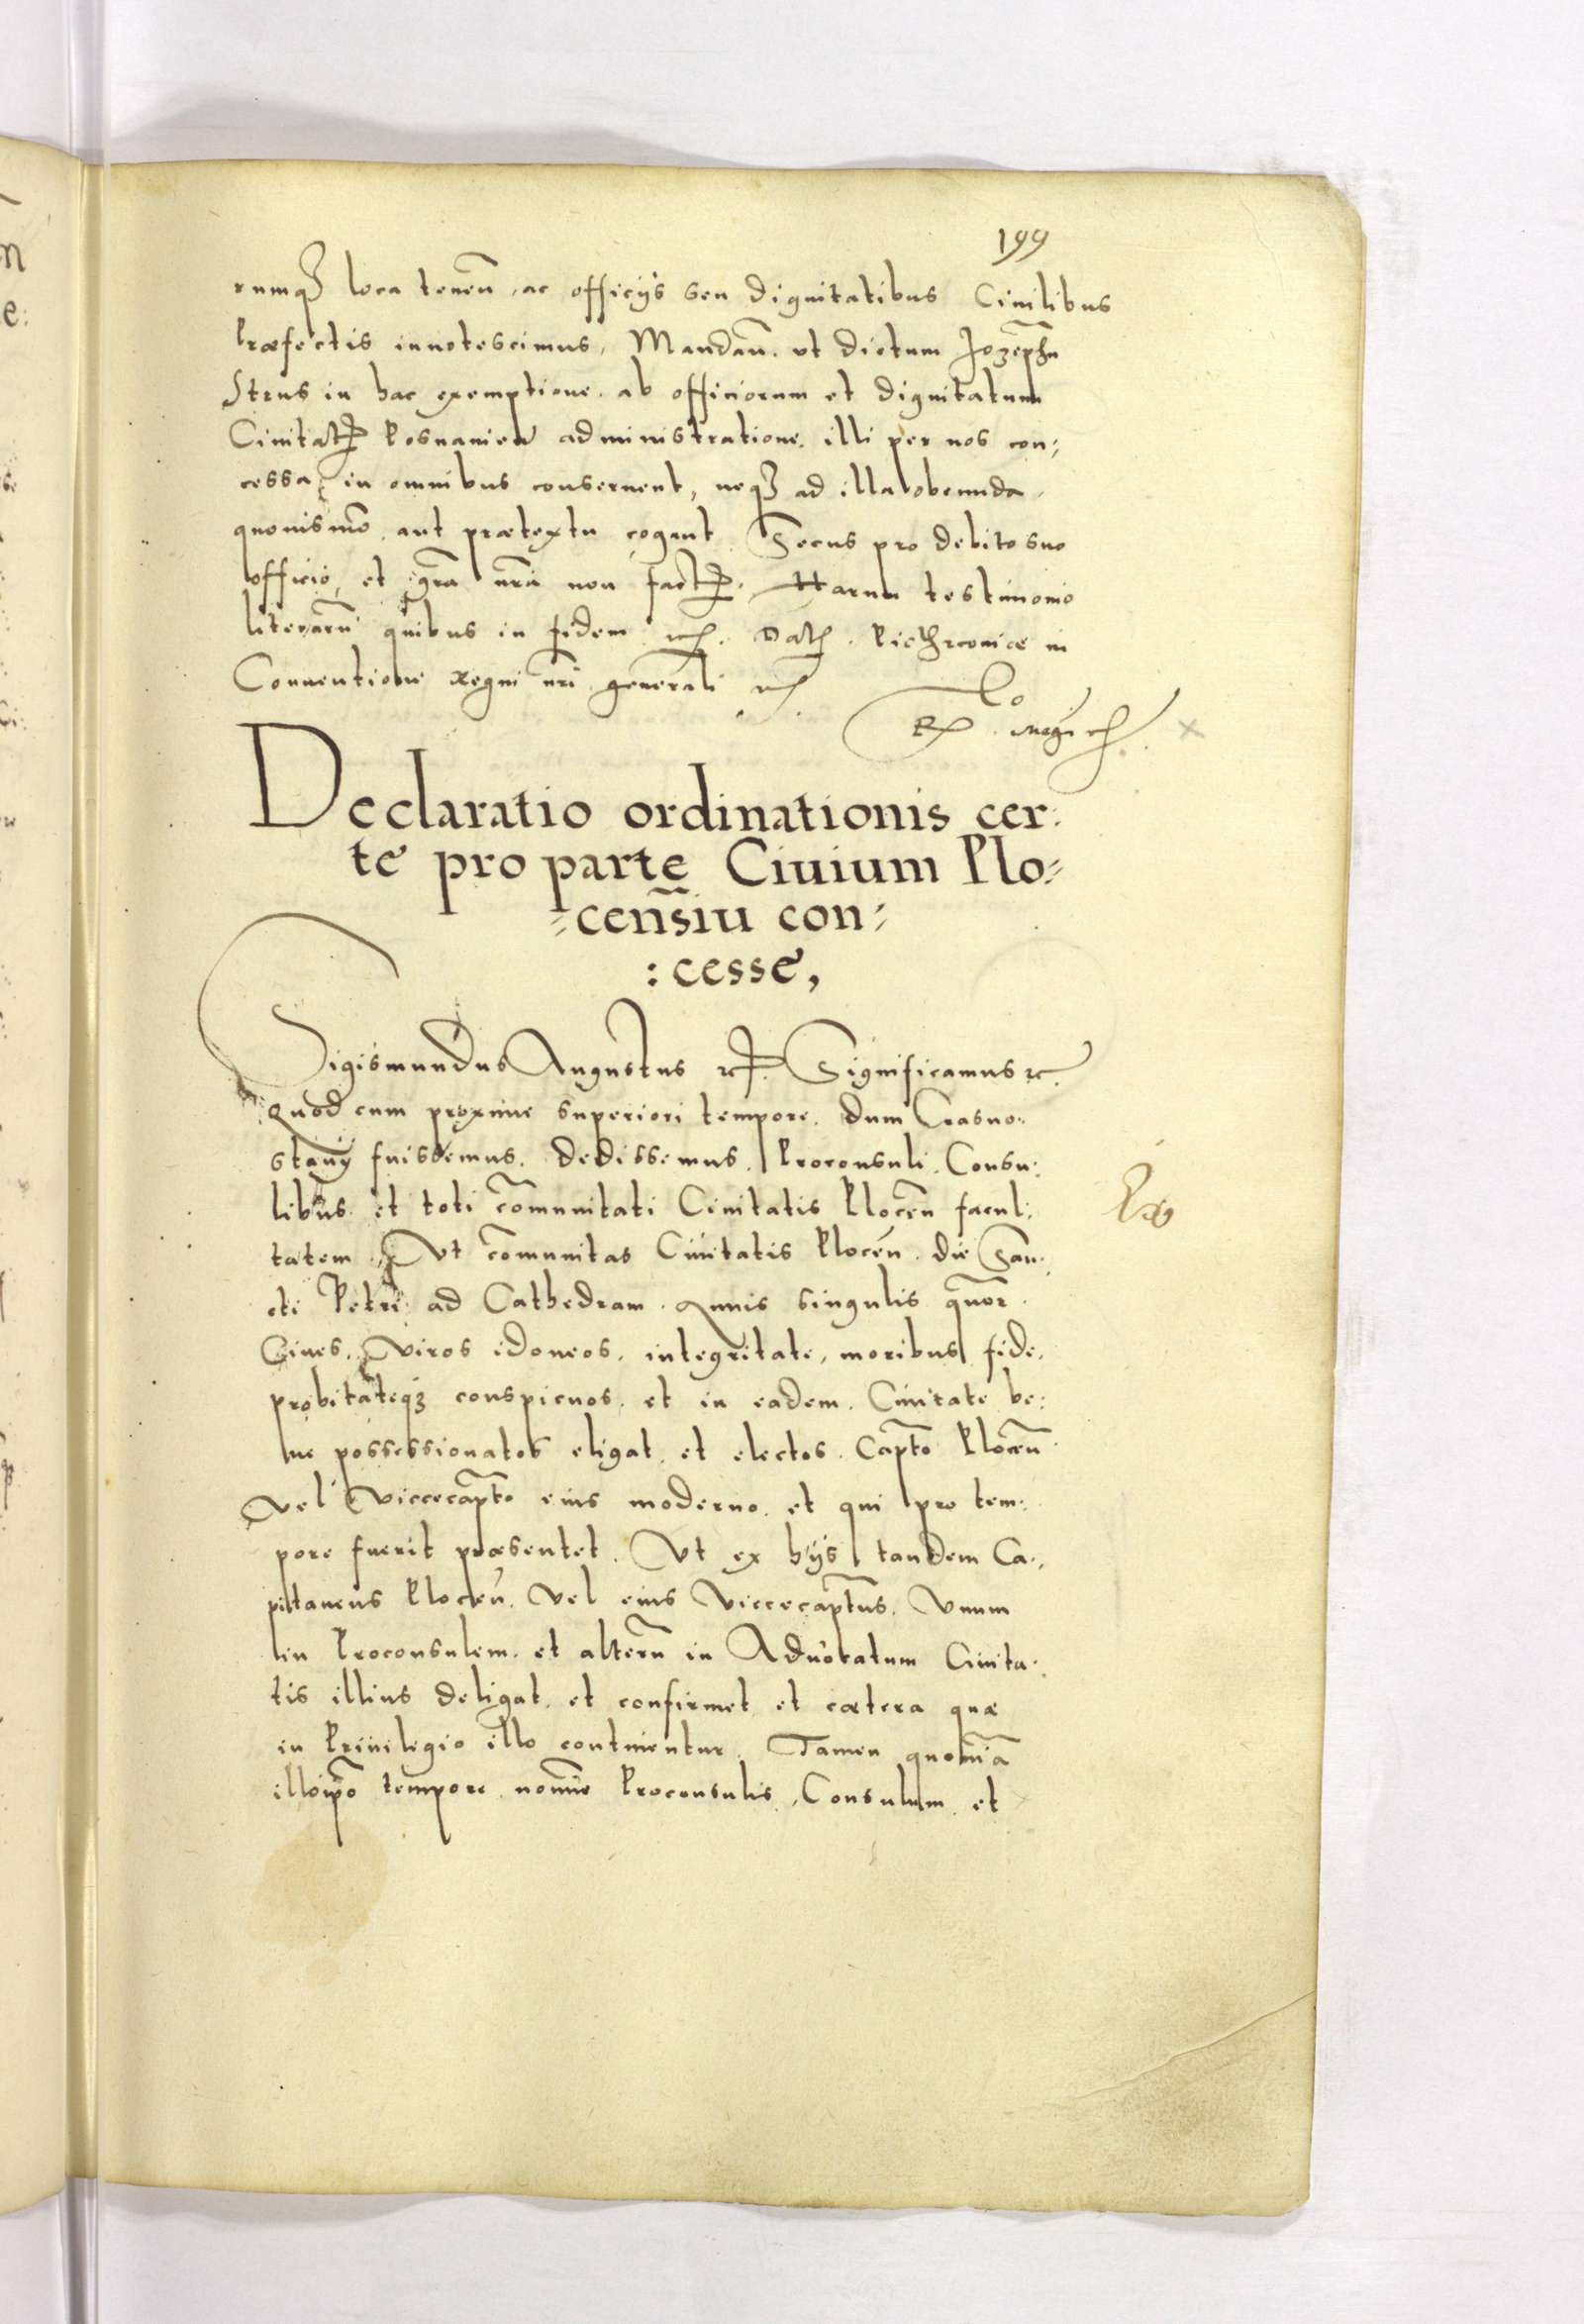 199
rumq3 loca tenen̄, ac officÿs seu dignitatibus Ciuilibus
Præfectis innotescimus, Mandan̄. vt dictum Jozephū
Strus in hac exemptione. ab officiorum et dignitatum
Ciuitatis Posnanien̄ administratione. illi per nos con⸗
cessa, in omnibus conseruent, neq3 ad illa obeunda,
quouismō. aut prætextu cogant Secus pro debito suo
officio, et gr̄a nr̄a non factur. Harum testimonio
literarū quibus in fidem etc. Dat. Piethrcouiæ in
Conuentione Regni nr̄i generali etc.
Declaratio ordinationis cer:
te pro parte Ciuium Plo⸗
⸗cen̄siu con⸗
:cesse,
Sigismundus Augustus etc. Significamus etc.
Quod cum proxime superiori tempore. dum Crasno:
stauÿ fuissemus. dedissemus. Proconsuli. Consu:
libus. et toti cōmunitati Ciuitatis Plocen̄ facul:
tatem. Vt cōmunitas Ciuitatis Plocen̄. die San:
cti Petri ad Cathedram. Annis singulis quatuor.
Ciues. Viros idoneos. integritate, moribus fide,
probitateq3 conspicuos. et in eadem. Ciuitate be:
ne possessionatos eligat. et electos. Captō Plocen̄
vel vicecaptō eius moderno. et qui pro tem:
pore fuerit præsentet. Vt ex hÿs tandem Ca:
pitaneus Plocen̄. vel eius vicecaptūs. Vnum
in Proconsulem. et alterū in Aduocatum Ciuita:
tis illius deligat. et confirmet et cætera quæ
in Priuilegio illo continentur. Tamen quoniā
illoipō tempore. nomīe Proconsulis, Consulum et